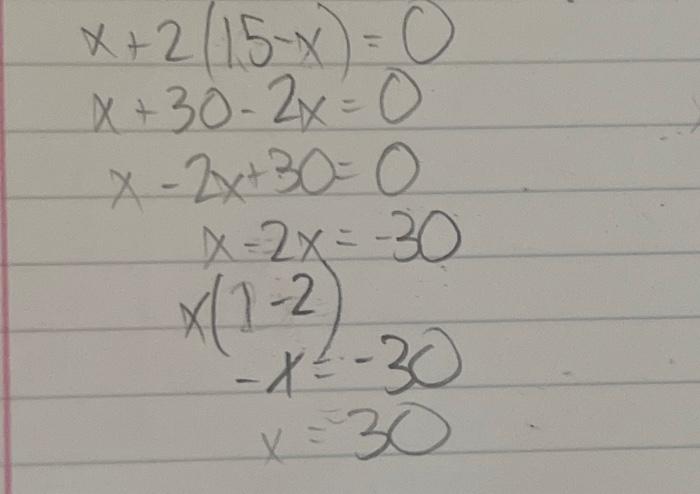 x+2(15-x)=0
x+30-2x=0
x-2x+30=0
x-2x=-30
x(1-2)
-x=-30
x=30